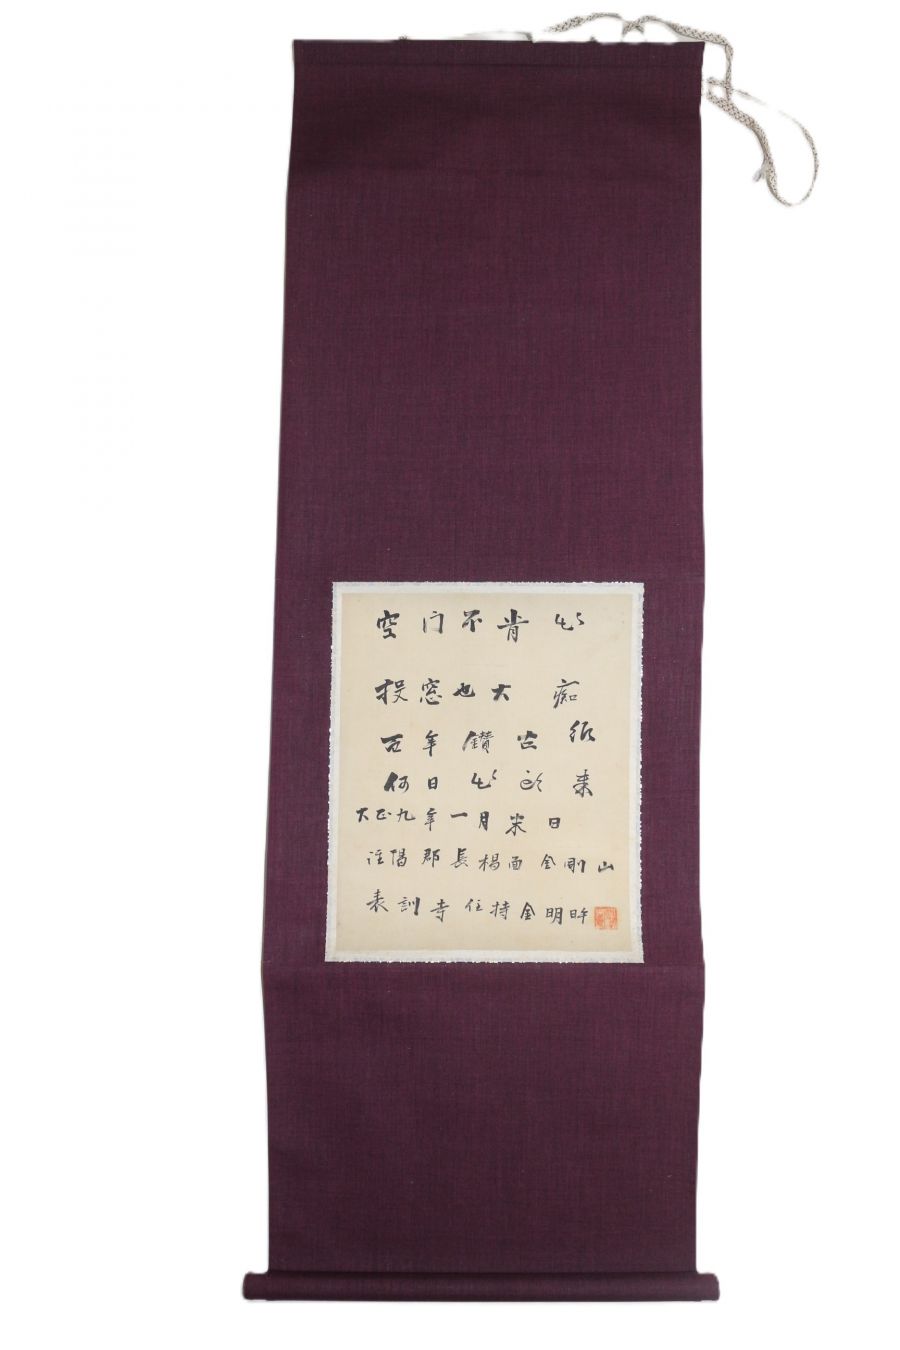 空门不肯出
投窓也大痴
百年鑽古紙
何日出頭来
大正九年一月米日
淮陽郡長楊面金剛山
表訓寺住持金明旿